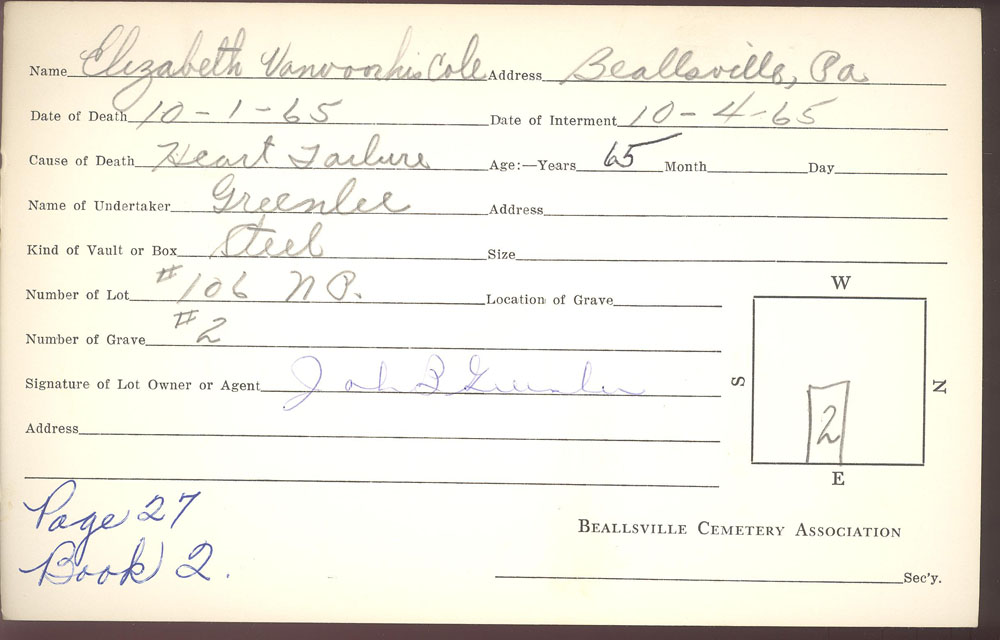 Name Elizabeth Vanvoorhis Cole Address Beallsville, Pa
Date of Death 10-1-65 Date of Interment 10-4-65
Cause of Death Heart Failure Age:—Years 65 Month Day
Name of Undertaker Greenlee Address
Kind of Vault or Box Steel Size
Number of Lot #106 N P. Location of Grave
Number of Grave #2
Signature of Lot Owner or Agent John B Greenlee
Address
W
S
N
2
E
Page 27
Book 2.
BEALLSVILLE CEMETERY ASSOCIATION
Sec'y.